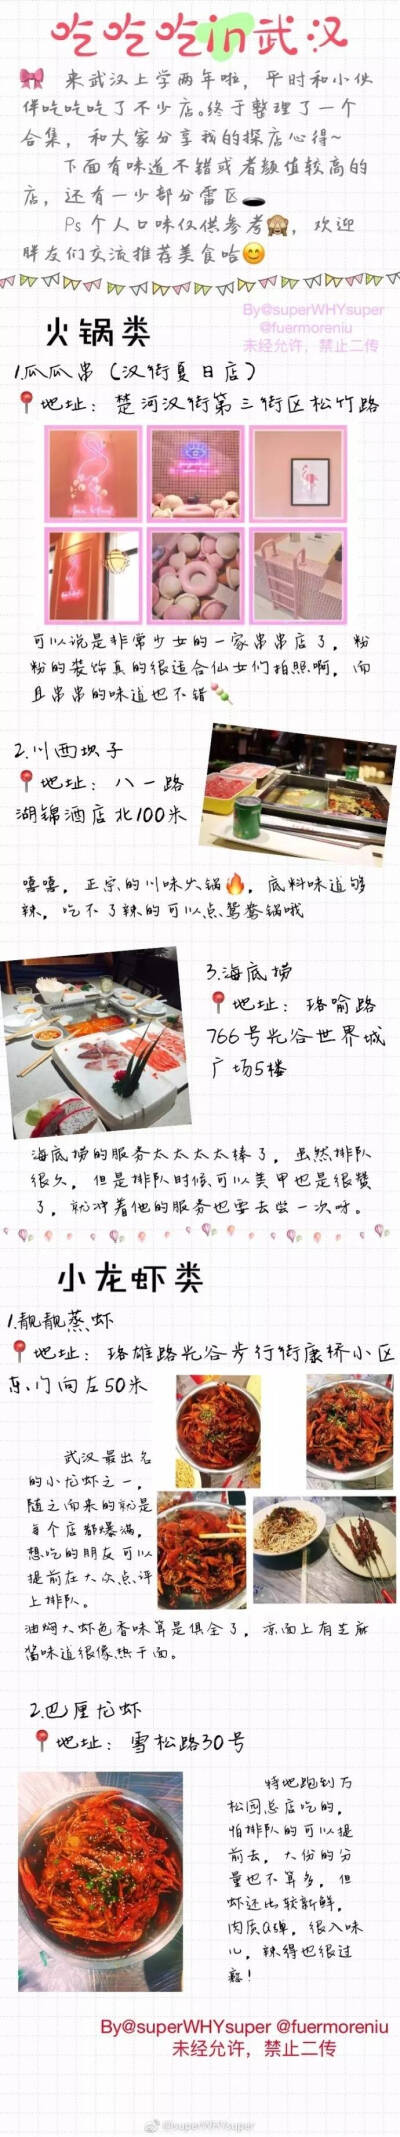 吃吃吃in武汉
来武汉上学两年啦，平时和小伙
伴吃吃吃了不少店。终于整理了一个
合集，和大家分享我的探店心得~
下面有味道不错或者颜值较高的
店，还有一少部分雷区
Ps个人口味仅供参考，欢迎
胖友们交流推荐美食哈
By@superWHYsuper
@fuermoreniu
未经允许，禁止二传
火锅类
1.瓜瓜串（汉街夏日店）
地址：楚河汉街第三街区松竹路
可以说是非常少女的一家串串店了，粉
粉的装饰真的很适合仙女们拍照啊，而
且串串的味道也不错
2.川西坝子
地址：八一路
湖锦酒店北100米
嘻嘻，正宗的川味火锅，底料味道够
辣，吃不了辣的可以点鸳鸯锅哦
3.海底捞
地址：珞喻路
766号光谷世界城
广场5楼
海底捞的服务太太太太棒了，虽然排队
很久，但是排队时候可以美甲也是很赞
了，就冲着他的服务也要去尝一次呀。
小龙虾类
1.靓靓蒸虾
地址：珞雄路光谷步行街康桥小区
东门向左50米
武汉最出名
的小龙虾之一，
随之而来的就是
每个店都爆满，
想吃的朋友可以
提前在大众点评
上排队。
油焖大虾色香味算是俱全了，凉面上有芝麻
酱味道很像热干面。
2.巴厘龙虾
地址：雪松路30号
特地跑到万
松园总店吃的，
怕排队的可以提
前去，大份的分
量也不算多，但
虾还比较新鲜，
肉质Q弹，很入味
儿，辣得也很过
瘾！
By@superWHYsuper @fuermoreniu
未经允许，禁止二传
@superWHYsuper